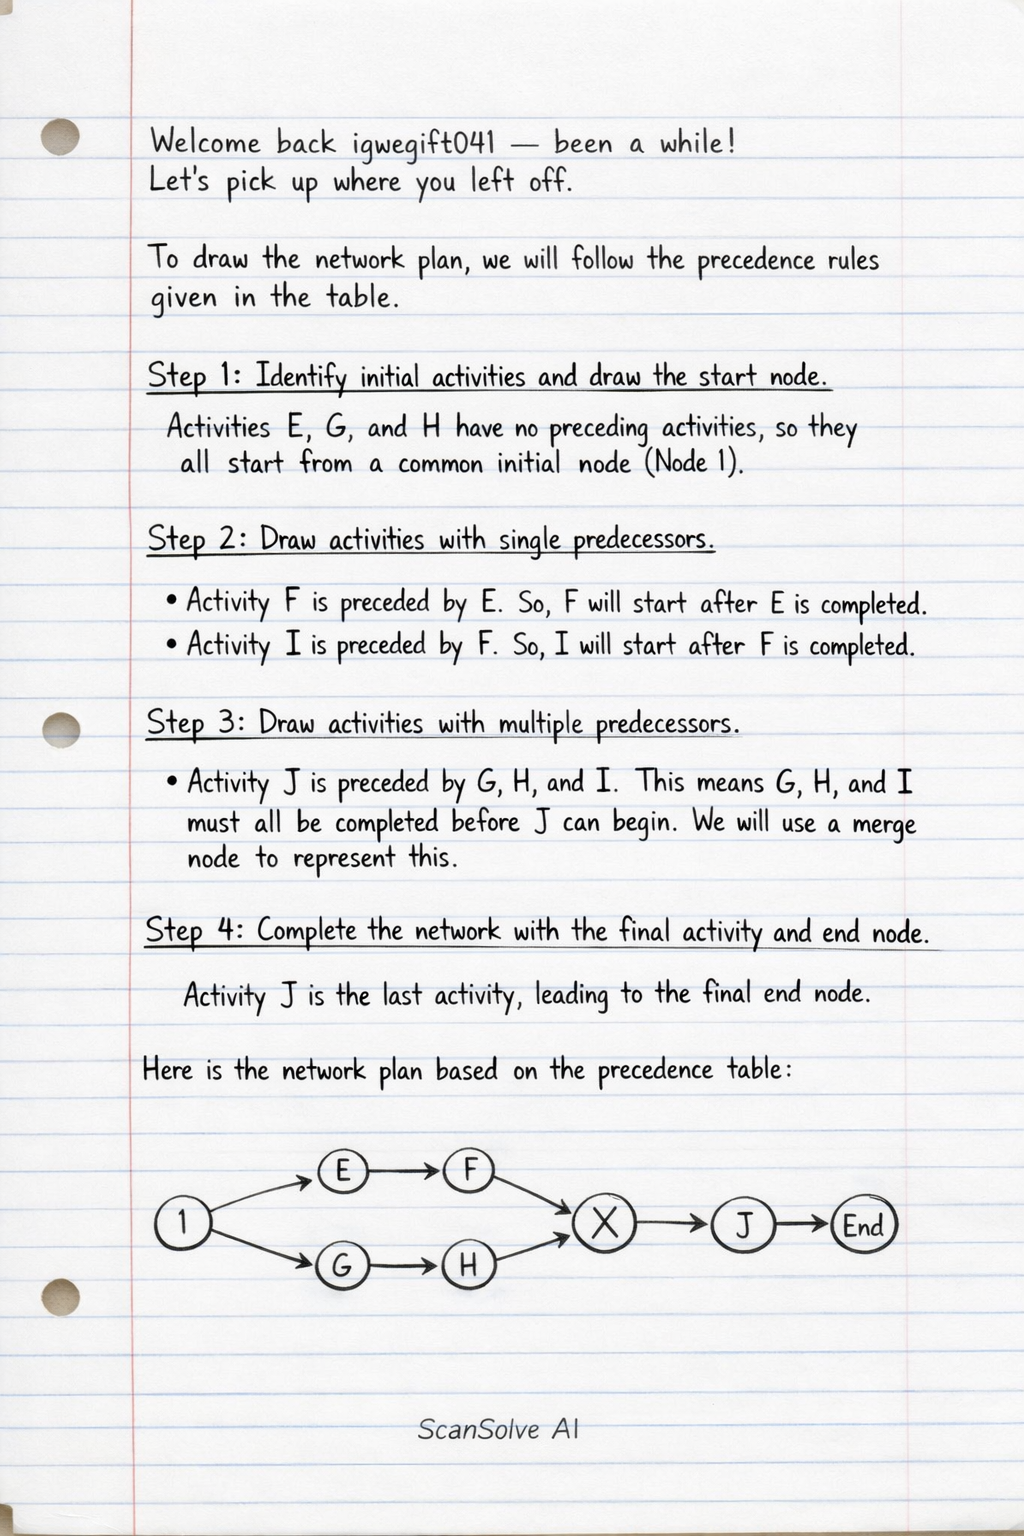 Welcome back igwegift041 — been a while!
Let's pick up where you left off.
To draw the network plan, we will follow the precedence rules
given in the table.
Step 1: Identify initial activities and draw the start node.
Activities E, G, and H have no preceding activities, so they
all start from a common initial node (Node 1).
Step 2: Draw activities with single predecessors.
• Activity F is preceded by E. So, F will start after E is completed.
• Activity I is preceded by F. So, I will start after F is completed.
Step 3: Draw activities with multiple predecessors.
• Activity J is preceded by G, H, and I. This means G, H, and I
must all be completed before J can begin. We will use a merge
node to represent this.
Step 4: Complete the network with the final activity and end node.
Activity J is the last activity, leading to the final end node.
Here is the network plan based on the precedence table:
E F
1 X J End
G H
ScanSolve AI